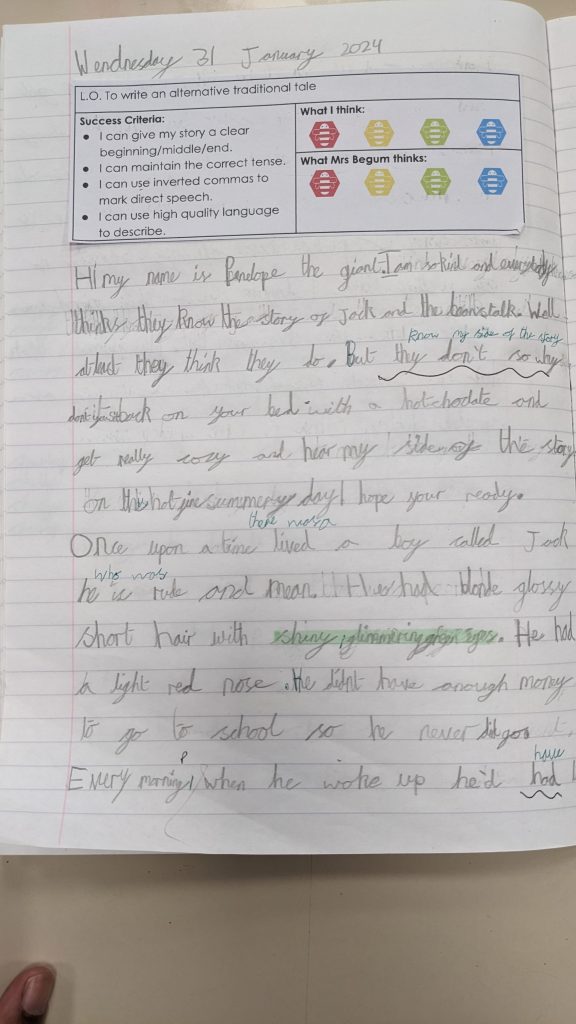 Wendnesday 31 January 2024
L.O. To write an alternative traditional tale
Success Criteria:
• I can give my story a clear
beginning/middle/end.
• I can maintain the correct tense.
• I can use inverted commas to
mark direct speech.
• I can use high quality language
to describe.
What I think:
What Mrs Begum thinks:
Hi my name is Penelope the giant. I am so kind and everybody
thinks they know the story of Jack and the beanstalk. Well
know my side of the story
atleast they think they do. But they don't so why
don't you back on your bed with a hot chodate and
get really cozy and hear my side of the story
on this hot summery day I hope your ready.
there was a
Once upon a time lived a boy called Jack
who was
he is rude and mean. He had blonde glossy
short hair with shiny glimmering eyes. He had
a light red nose. He didnt have enough money
to go to school so he never did go
have
Every morning, when he woke up he'd had